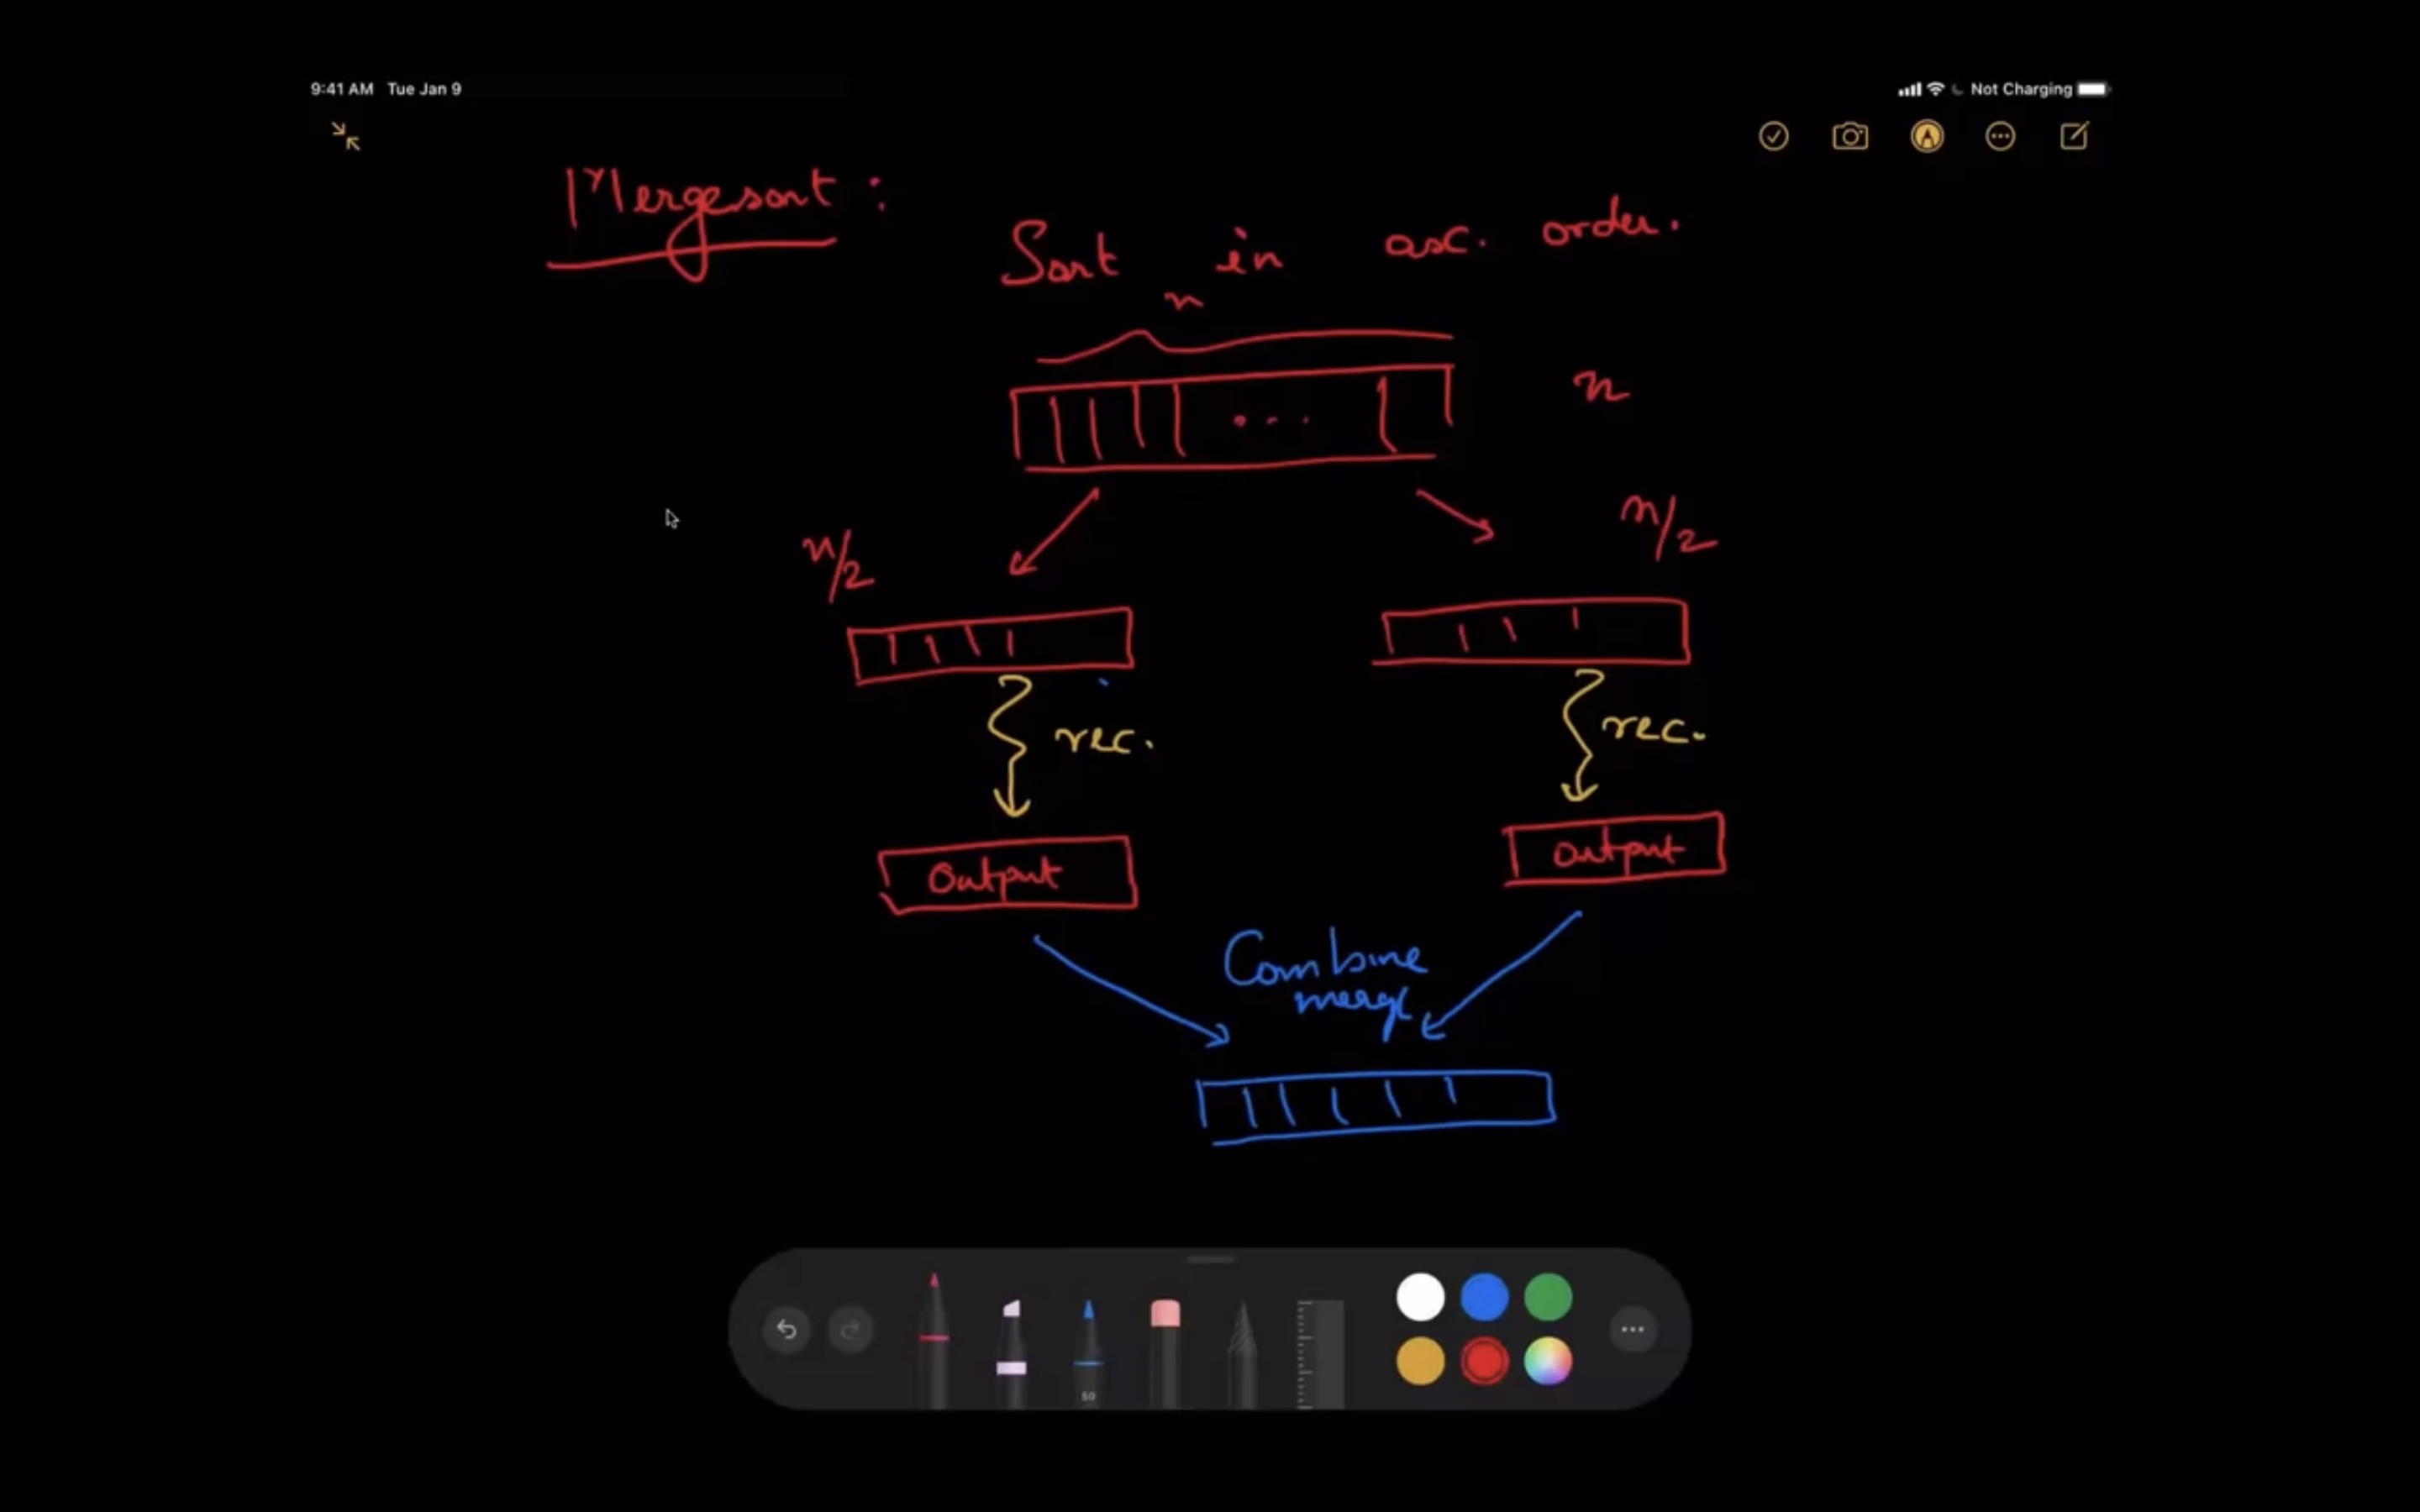 9:41 AM Tue Jan 9
Not Charging
Mergesort :
Sort in asc. order.
n
n
n/2
n/2
rec.
rec.
Output
Output
Combine
merge
50